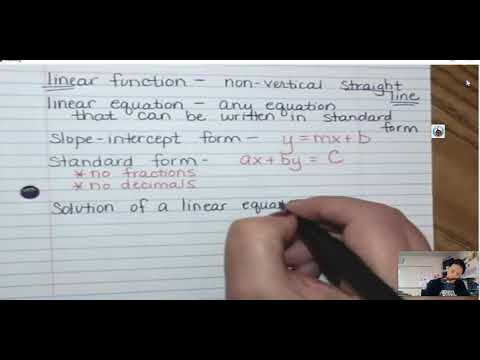 linear function – non-vertical straight
line
linear equation – any equation
that can be written in standard
form
Slope-intercept form – y = mx + b
Standard form – ax + by = C
* no fractions
* no decimals
Solution of a linear equa